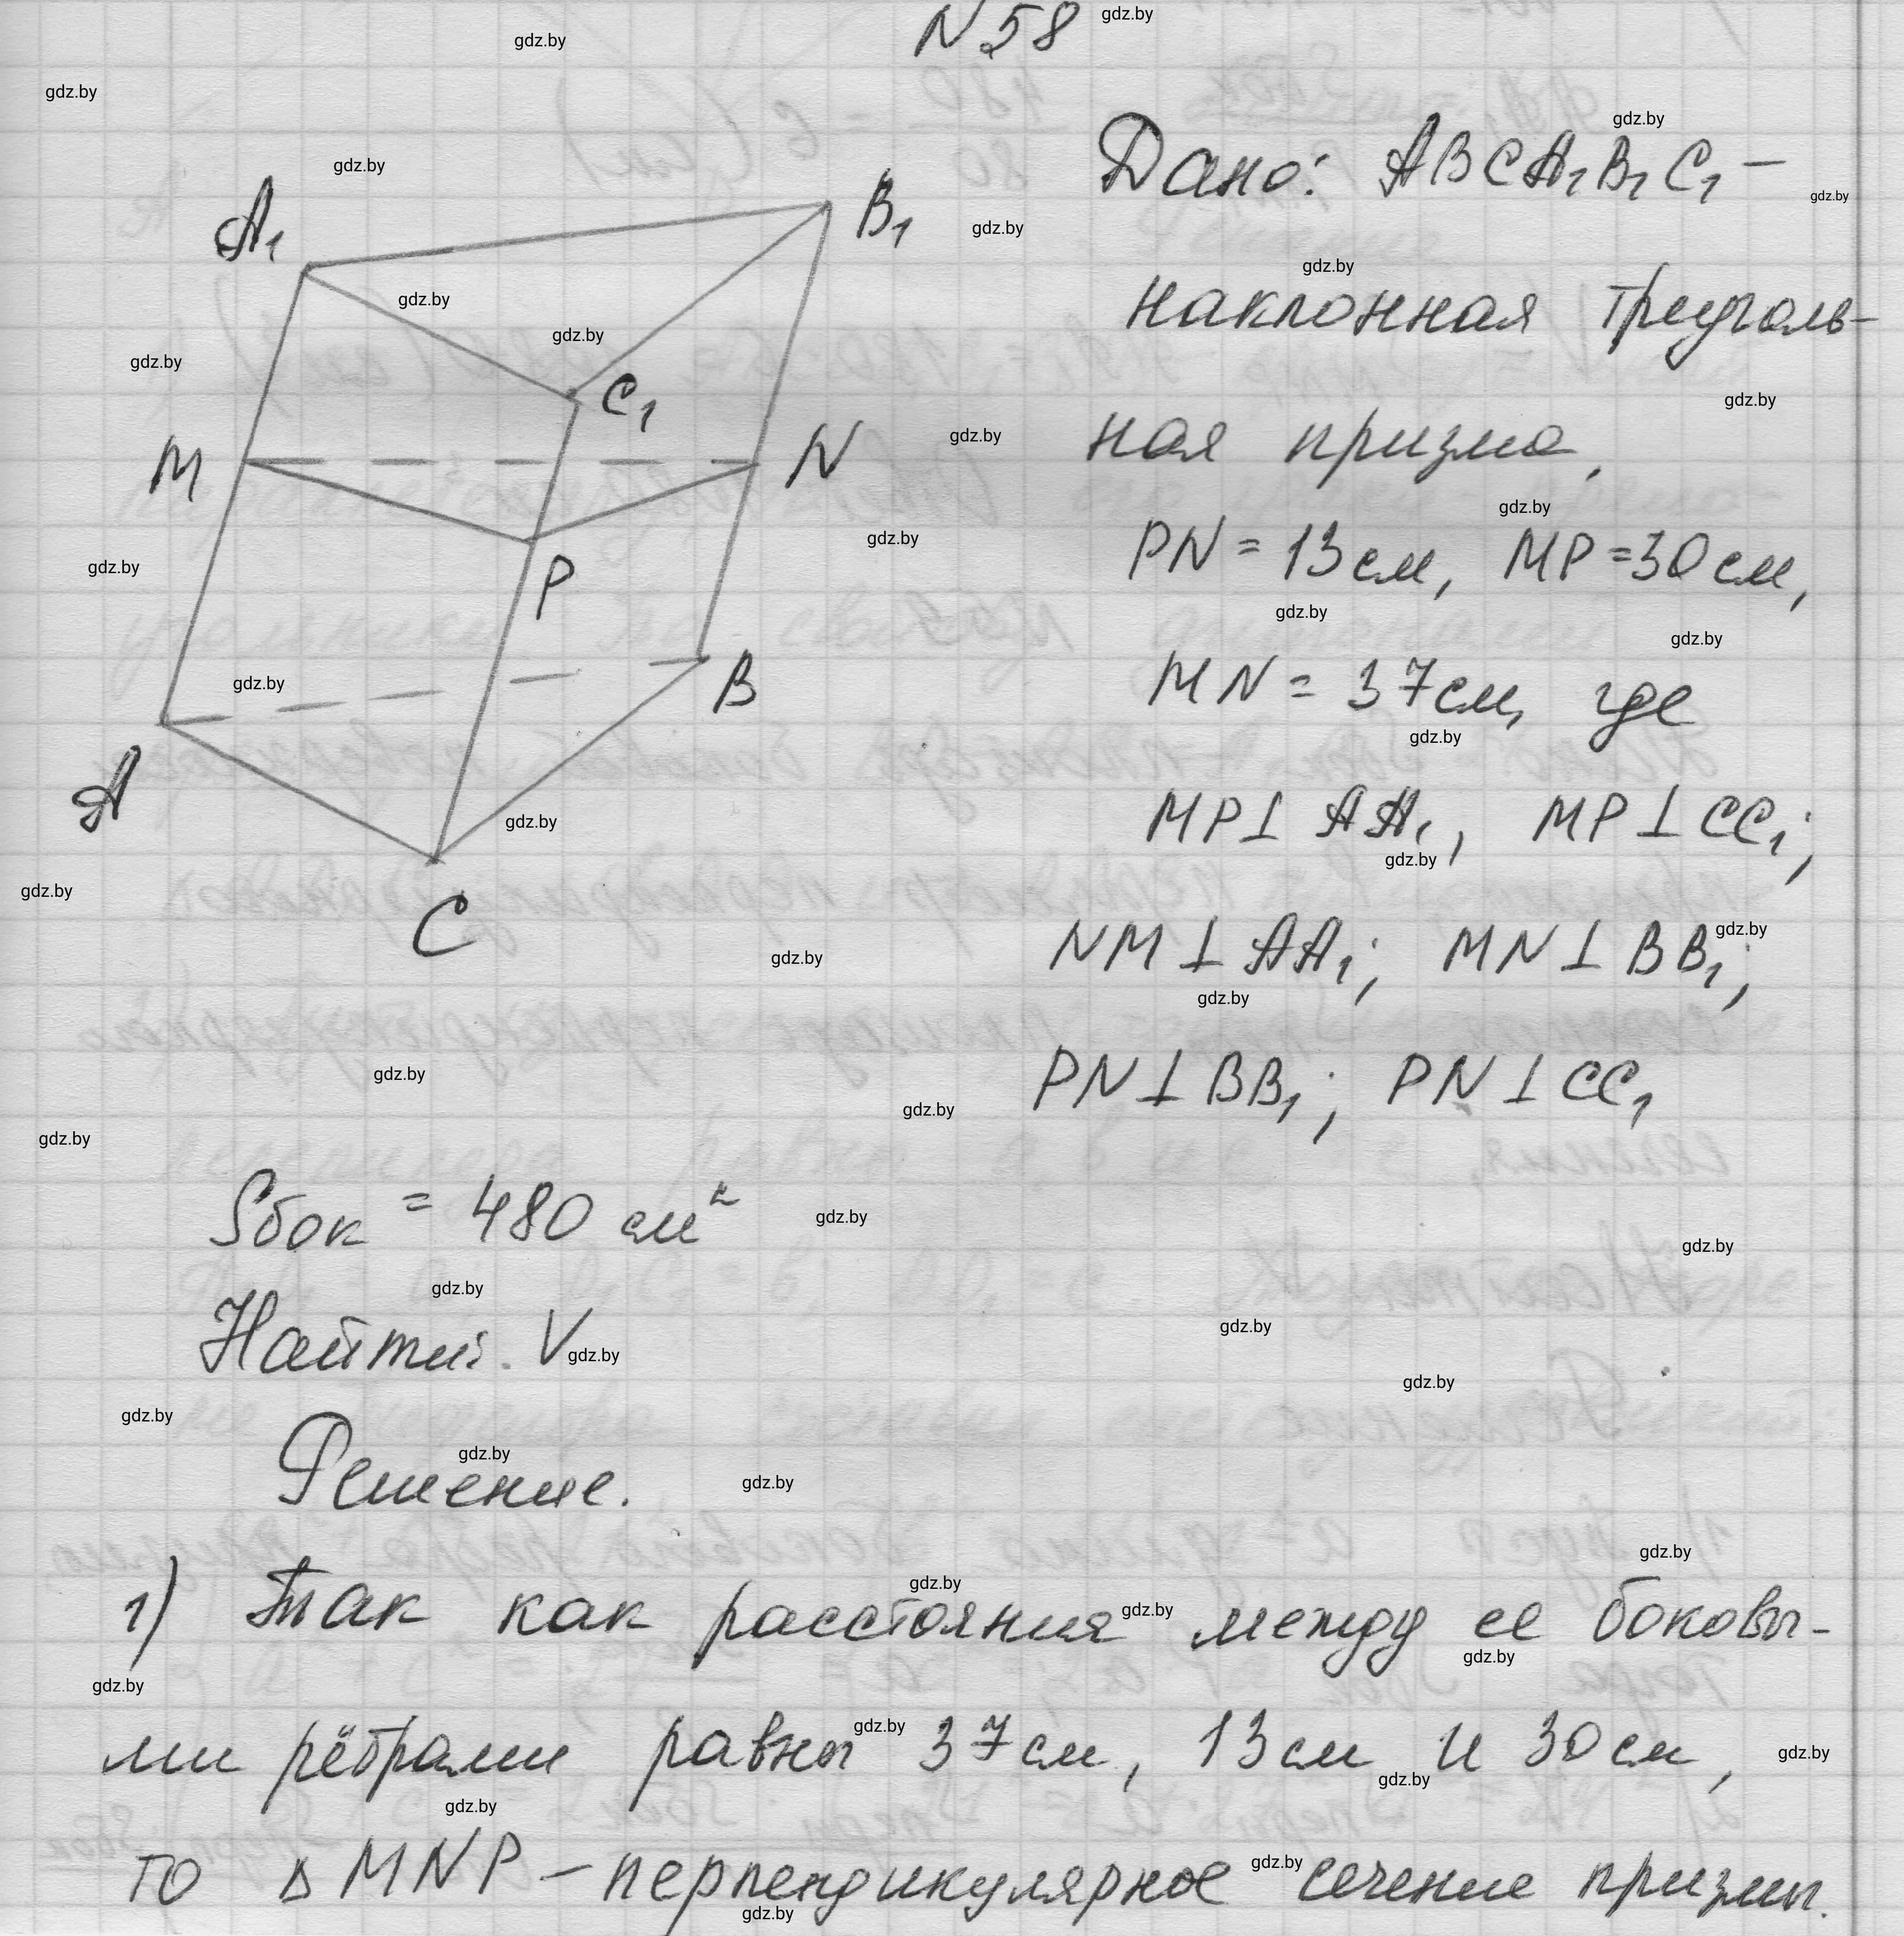 N 58
Дано: ABCA₁B₁C₁ –
наклонная треуголь-
ная призма,
PN = 13 см, MP = 30 см,
MN = 37 см, где
MP ⊥ AA₁, MP ⊥ CC₁;
NM ⊥ AA₁; MN ⊥ BB₁;
PN ⊥ BB₁; PN ⊥ CC₁
A₁
B₁
C₁
M
N
P
A
B
C
Sбок = 480 см²
Найти: V
Решение.
1) Так как расстояния между ее боковы-
ми рёбрами равны 37 см, 13 см и 30 см,
то △ MNP – перпендикулярное сечение призмы.
gdz.by